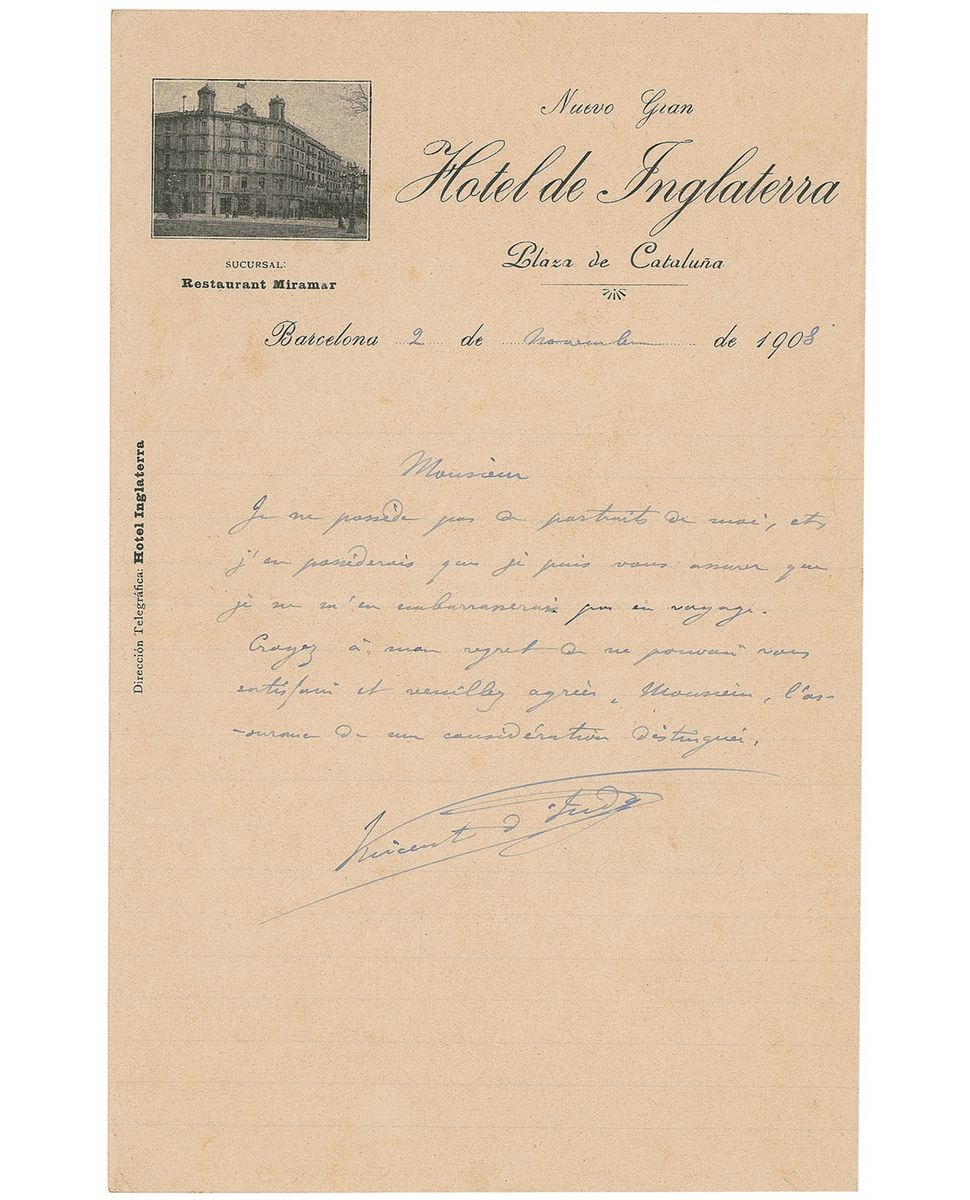 Nuevo Gran
Hotel de Inglaterra
Plaza de Cataluña
SUCURSAL:
Restaurant Miramar
Barcelona 2 de novembre de 1908
Dirección Telegráfica: Hotel Inglaterra
Monsieur
Je ne possède pas de portraits de moi, et,
j'en possèderais que je puis vous assurer que
je ne m'en embarrasserais pas en voyage.
Croyez à mon regret de ne pouvoir vous
satisfaire et veuillez agréer, Monsieur, l'as-
-surance de ma considération distinguée.
Vincent d'Indy